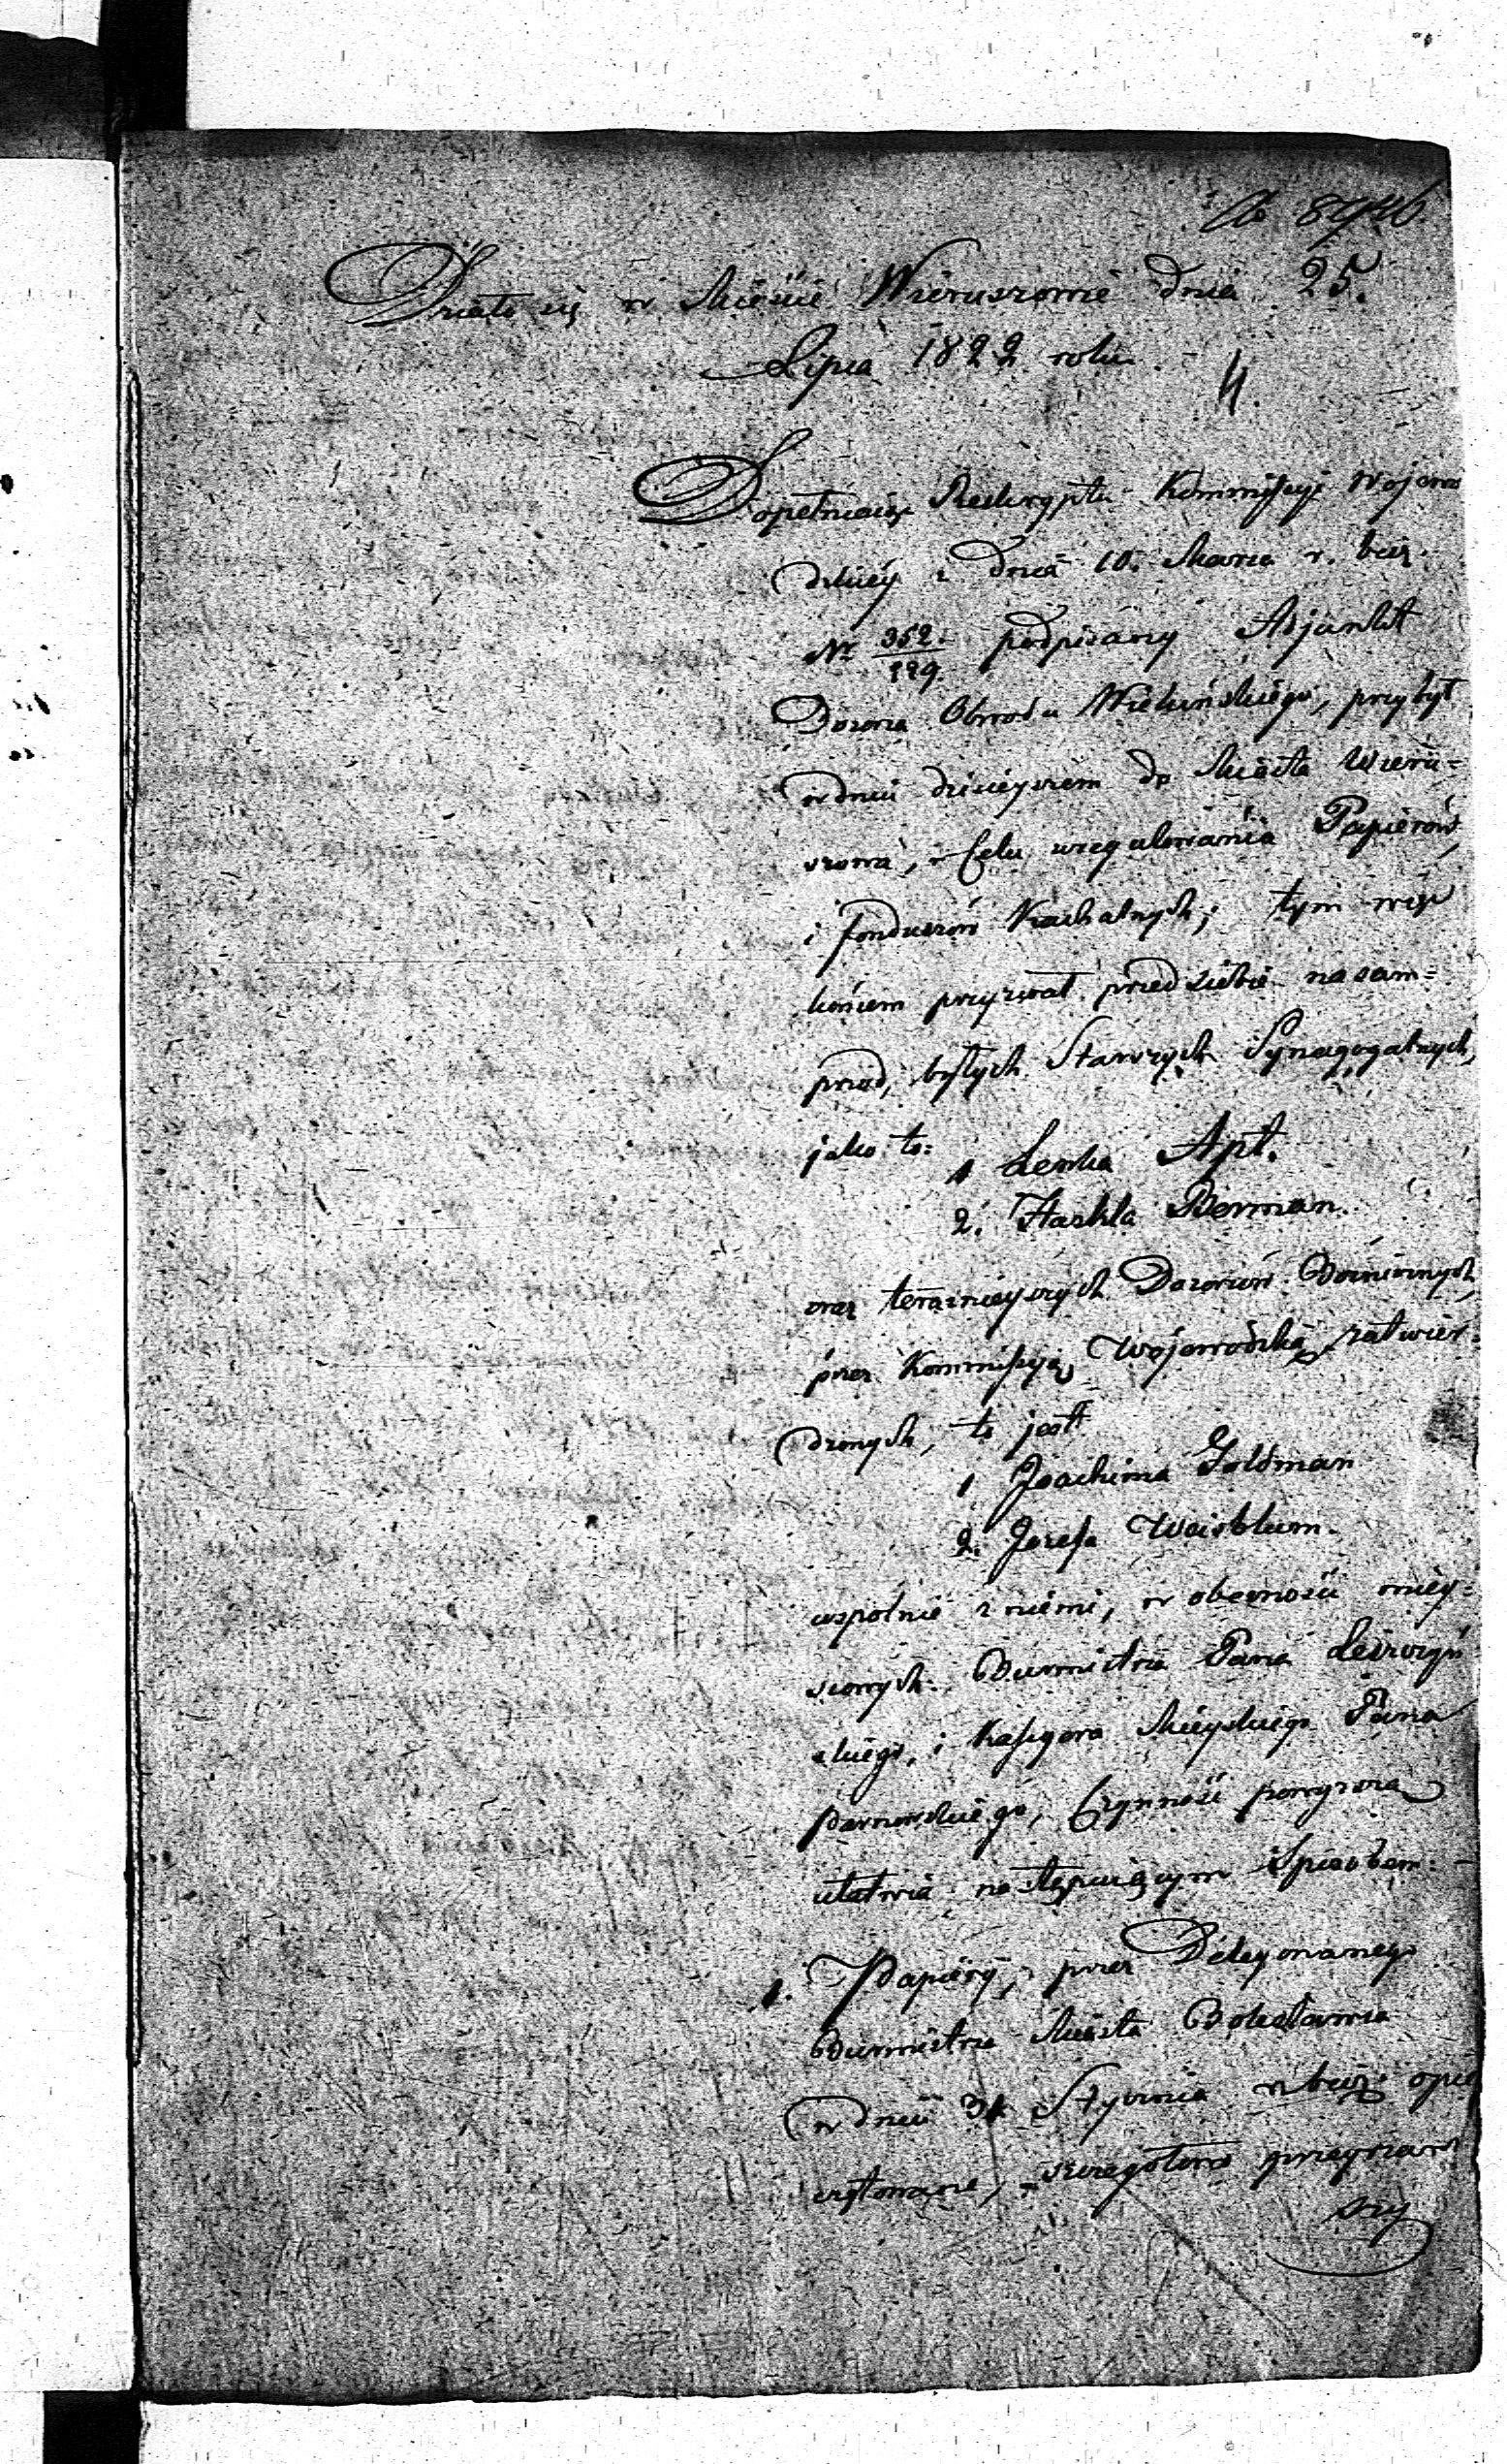 8746
Działo się w Mieście Wieruszowie dnia 25.
Lipca 1822 roku
4.
Dopełniaiąc Reskryptu Kommissyi Wojewo
dzkiey z dnia 10. Marca r. bież.
Nr 352./129. podpisany Adjunkt
Dozorca Obwodu Wieluńskiego, przybył
w dniu dzisieyszem do Miasta Wieru=
szowa, w Celu uregulowania Papierów
i funduszów Kachalnych; tym więc
końcem przyzwał przed siebie na sam=
przod, byłych Starszych Synagogalnych,
jako to:
1 Leska Apt.
2. Haskla Berman.
oraz teraznieyszych Dozorców Bożnicznych,
przez Kommissyią Wojewodzką zatwier=
dzonych, to jest
1 Joachima Goldman
2. Jozefa Waisblum.
wspolnie z niemi, w obecności miey=
scowych Burmistrza Pana Leszczyń
skiego, i Kassyera Mieyskiego Pana
Parnowskiego, Czynność powyzszą
ułatwia następuiącym Sposobem:
1. Papiery, przez Delegowanego
Burmistrza Miasta Bolesławca
w dniu 31 Stycznia r. bież: opie
czętowane, szczegołowo przeyrzaw
szy